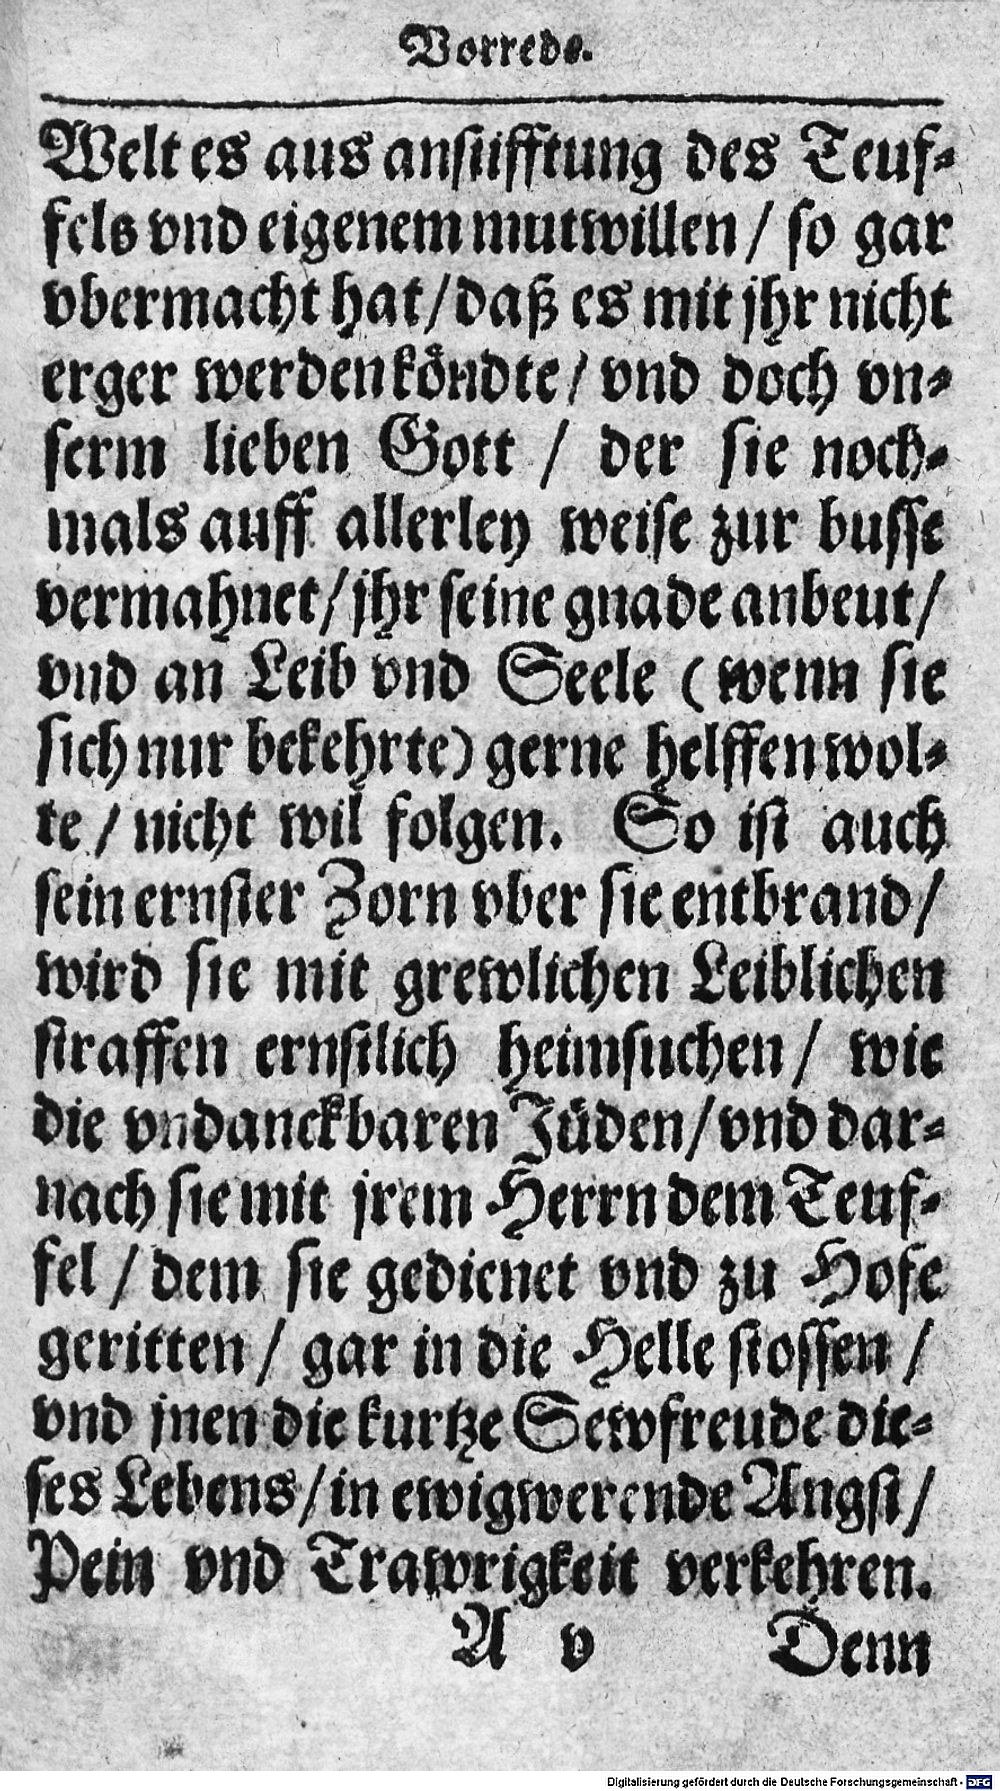 Vorrede.
Welt es aus anstifftung des Teuf⸗
fels vnd eigenem mutwillen / so gar
vbermacht hat / daß es mit jhr nicht
erger werden koͤndte / vnd doch vn⸗
serm lieben Gott / der sie noch⸗
mals auff allerley weise zur busse
vermahnet / jhr seine gnade anbeut /
vnd an Leib vnd Seele (wenn sie
sich nur bekehrte) gerne helffen wol⸗
te / nicht wil folgen. So ist auch
sein ernster Zorn vber sie entbrand /
wird sie mit grewlichen Leiblichen
straffen ernstlich heimsuchen / wie
die vndanckbaren Jüden / vnd dar⸗
nach sie mit jrem Herrn dem Teuf⸗
fel / dem sie gedienet vnd zu Hofe
geritten / gar in die Helle stossen /
vnd jnen die kurtze Sewfreude die⸗
ses Lebens / in ewigwerende Angst /
Pein vnd Trawrigkeit verkehren.
A v Denn
Digitalisierung gefördert durch die Deutsche Forschungsgemeinschaft - DFG